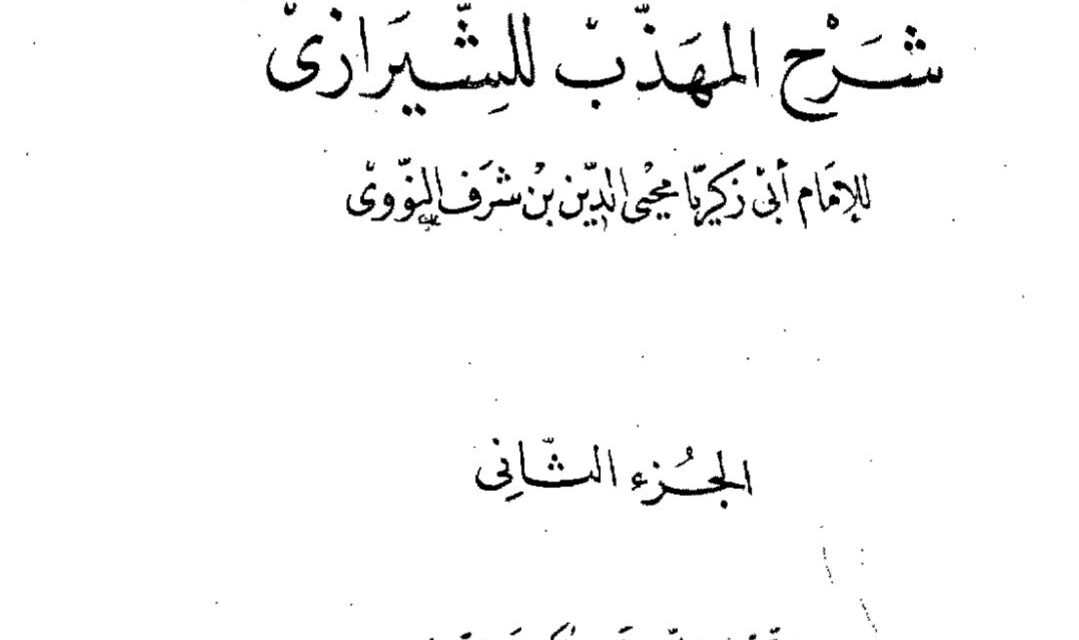 شَرْح المهَذّب للشِّيرَازى
للإمَام أبى زكريّا محيى الدّين بن شرَف النّووى
الجُزء الثّانِى